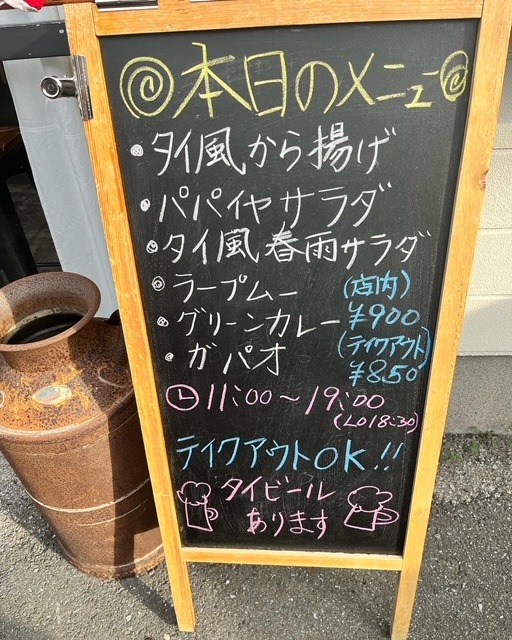 本日のメニュー
・タイ風から揚げ
・パパイヤサラダ
・タイ風春雨サラダ
・ラープムー
・グリーンカレー
・ガパオ
(店内)
¥900
(テイクアウト)
¥850
11:00～19:00
(LO18:30)
テイクアウトOK!!
タイビール
あります